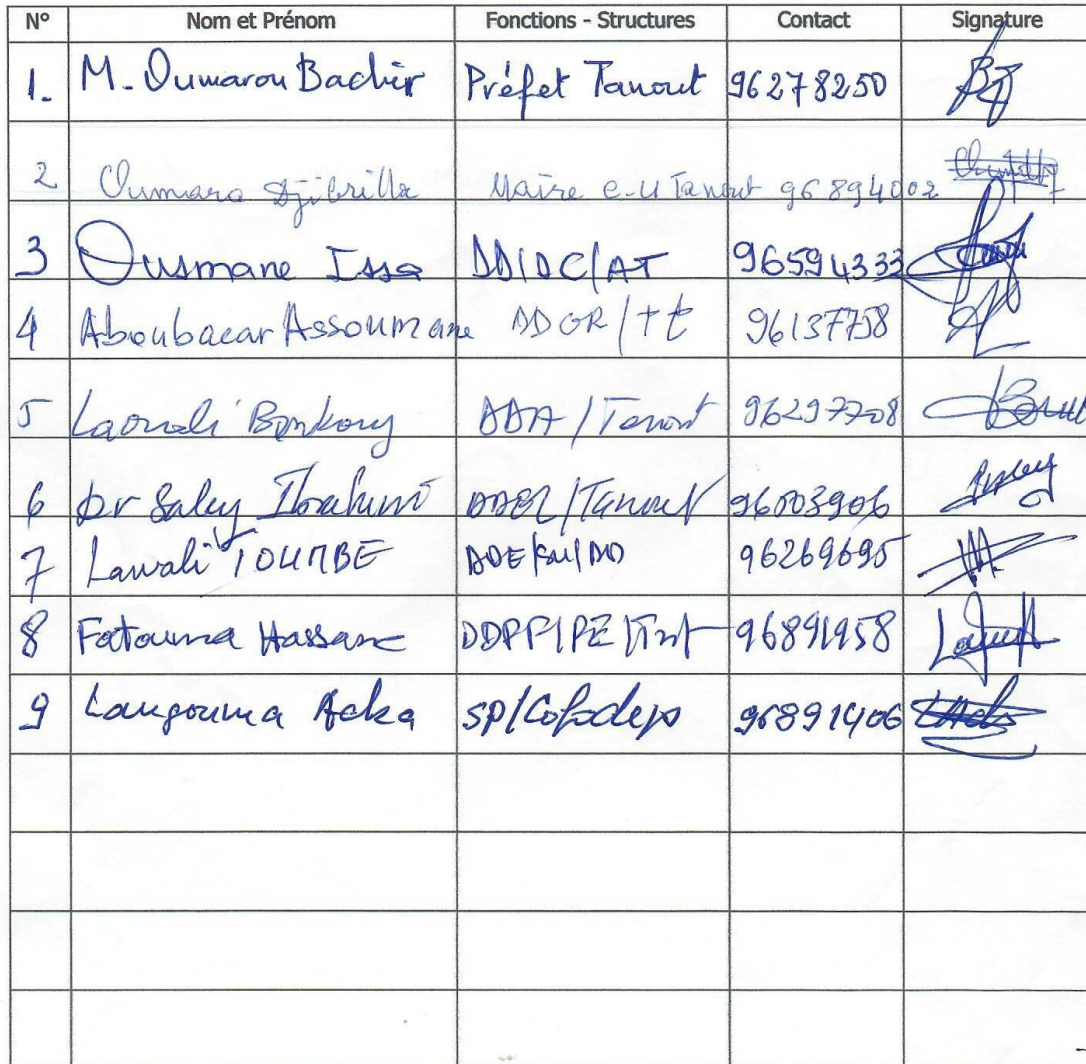 N° Nom et Prénom Fonctions - Structures Contact Signature
1. M. Oumarou Bachir Préfet Tanout 96278250
2 Oumara Djibrilla Maire C-U Tanout 96894002
3 Ousmane Issa DD/DC/AT 96594333
4 Aboubacar Assoumane DDGR/Tt 96137758
5 Laouali Bonkouy DDA/Tanout 96297708
6 Dr Saley Ibrahim /Tanout 96003906
7 Lawali TOUMBE DDE/SU/DD 96269695
8 Fatouma Hassane DDPF/PE/Tnt 96891958
9 Langouma Acka SP/Cofodep 96891406